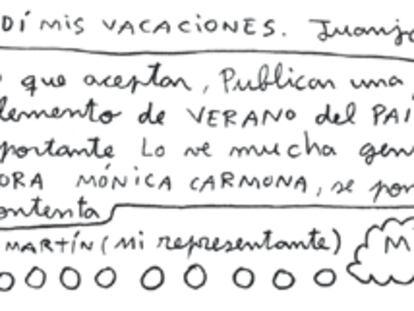 DÍ MIS VACACIONES. Juanjo
que aceptan, Publican una
lemento de VERANO del PAÍ
portante Lo ve mucha gen
ORA MÓNICA CARMONA, se pon
ontenta
MARTÍN (Mi representante) M